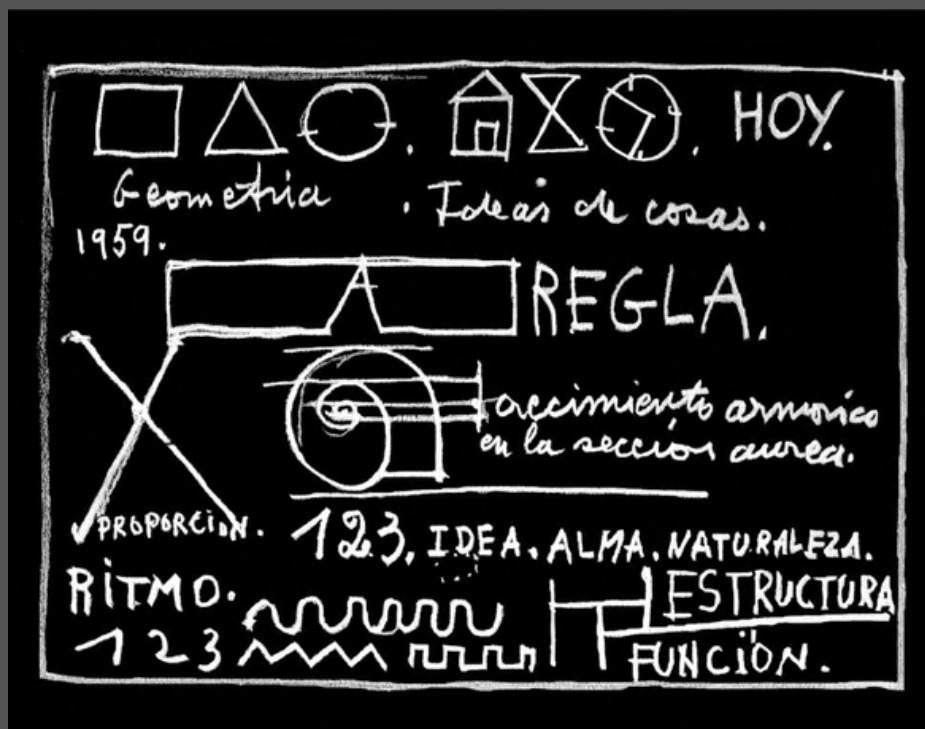 HOY.
Geometria . Ideas de cosas.
1959.
REGLA.
crecimiento armonico
en la sección aurea.
PROPORCIÓN.
123. IDEA. ALMA. NATURALEZA.
RITMO.
ESTRUCTURA
123
FUNCIÓN.